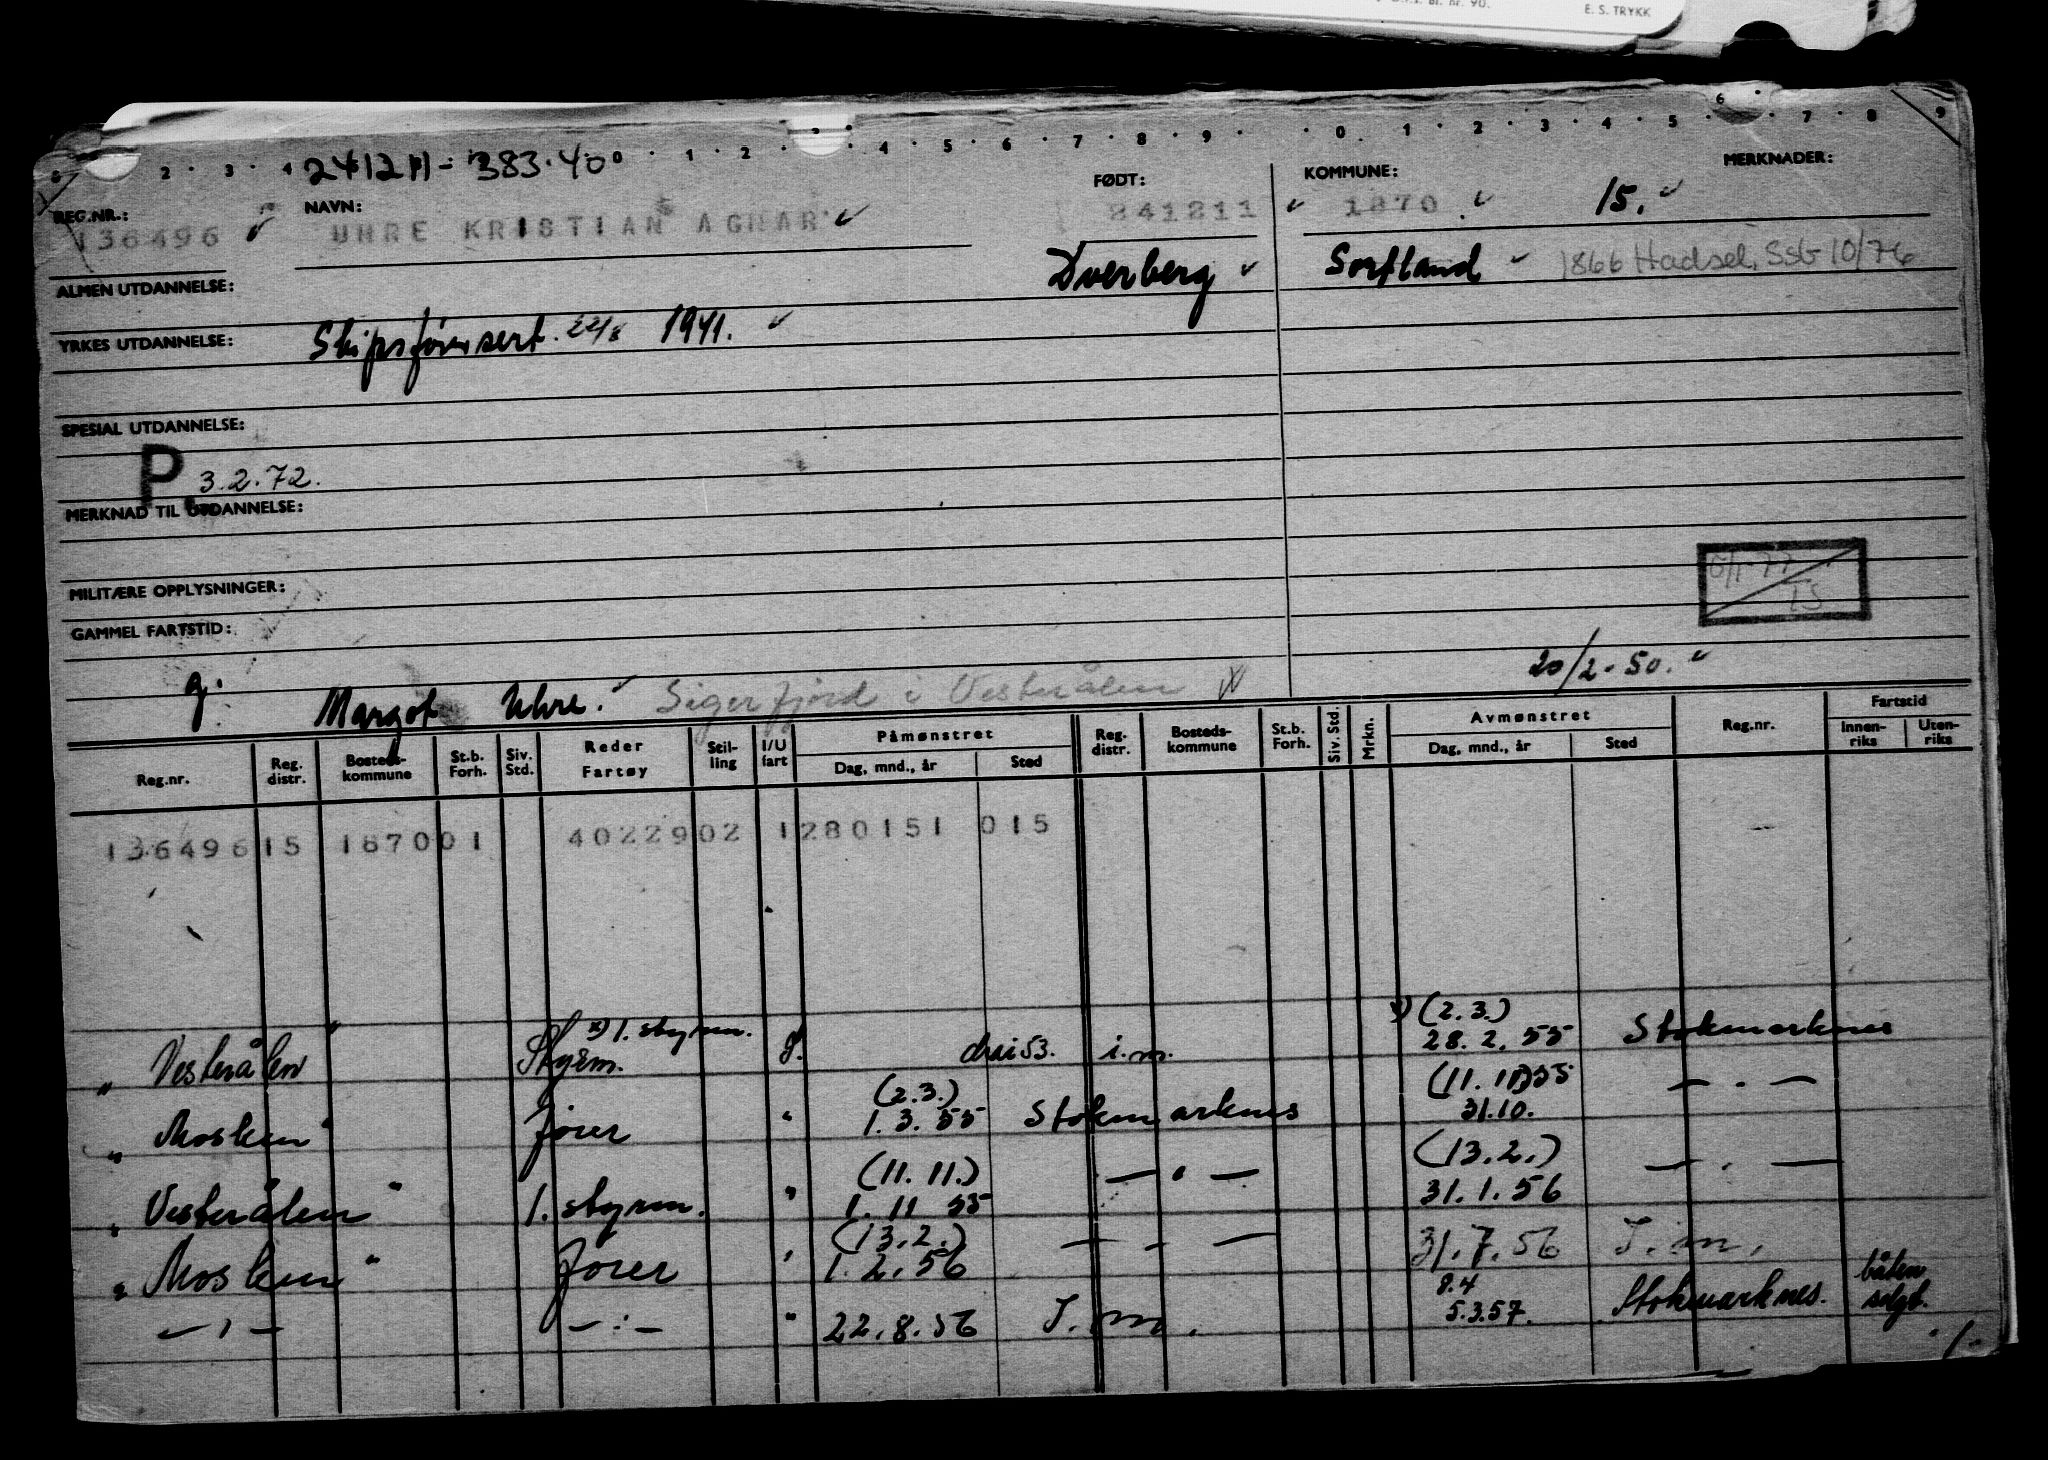 E. S. TRYKK
2 · 3 · 4 0 · 1 · 2 · 3 · 4 · 5 · 6 · 7 · 8 · 9 · 0 · 1 · 2 · 3 · 4 · 5 · 6 · 7 · 8 · 9
24121911-383.40
REG.NR.: NAVN: FØDT: KOMMUNE: MERKNADER:
136496 UHRE KRISTIAN AGNAR 241211 1870 15.
Dverberg Sortland 1866 Hadsel, SSb 10/76
ALMEN UTDANNELSE:
YRKES UTDANNELSE: Skipsførersert. 22/8 1941.
SPESIAL UTDANNELSE:
P. 3.2.72.
MERKNAD TIL UTDANNELSE:
MILITÆRE OPPLYSNINGER: 6/1-77
IS
GAMMEL FARTSTID:
20/2-50.
g. Margot Uhre. Sigerfjord i Vesterålen
Reg.nr. Reg. distr. Bosteds-kommune St.b. Forh. Siv. Std. Reder Fartøy Stil-ling I/U fart Påmønstret Dag, mnd., år Sted Reg. distr. Bosteds-kommune St.b. Forh. Siv. Std. Mrkn. Avmønstret Dag, mnd., år Sted Reg.nr. Fartstid Innen-riks Uten-riks
136496 15 1870 01 402290 2 1 280151 015
x) 1. styrm. x) (2.3.)
" Vesterålen " Styrm. I. drai 53. i.m. 28.2.55 Stokmarknes
(2.3.) (11.11) 55
" Mosken " fører " 1.3.55 Stokmarknes 31.10. — · —
(11.11.) (13.2.)
" Vesterålen " 1. styrm. " 1.11 55 — " — 31.1.56 — · —
(13.2.)
" Mosken " fører " 1.2.56 — " — 31.7.56 I.m.
8.4 båten
— " — — " — " 22.8.56 I.m. 5.3.57. Stokmarknes. selgt.
./.